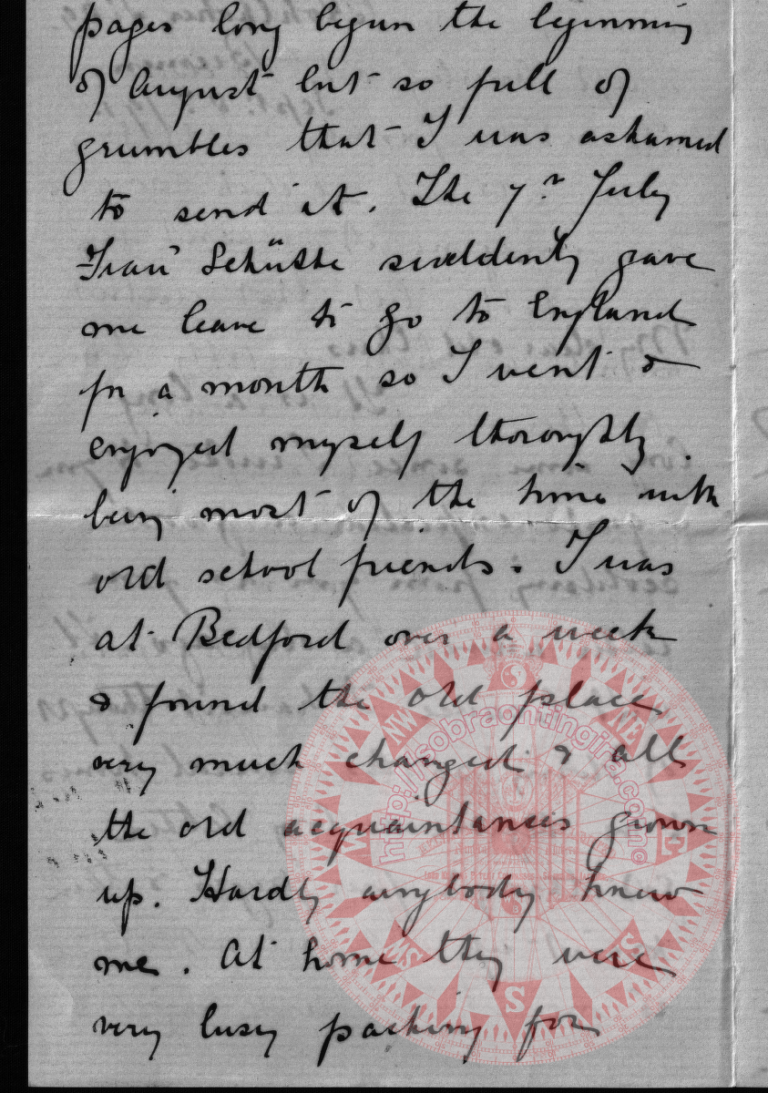 pages long begun the beginning
of August but so full of
grumbles that I was ashamed
to send it. The 7th July
Frau Schütte suddenly gave
me leave to go to England
for a month so I went &
enjoyed myself thoroughly
being most of the time with
old school friends. I was
at Bedford over a week
& found the old place
very much changed & all
the old acquaintances grown
up. Hardly anybody knew
me. At home they were
very busy packing for
NW
NE
http://sobraontingira.com
S